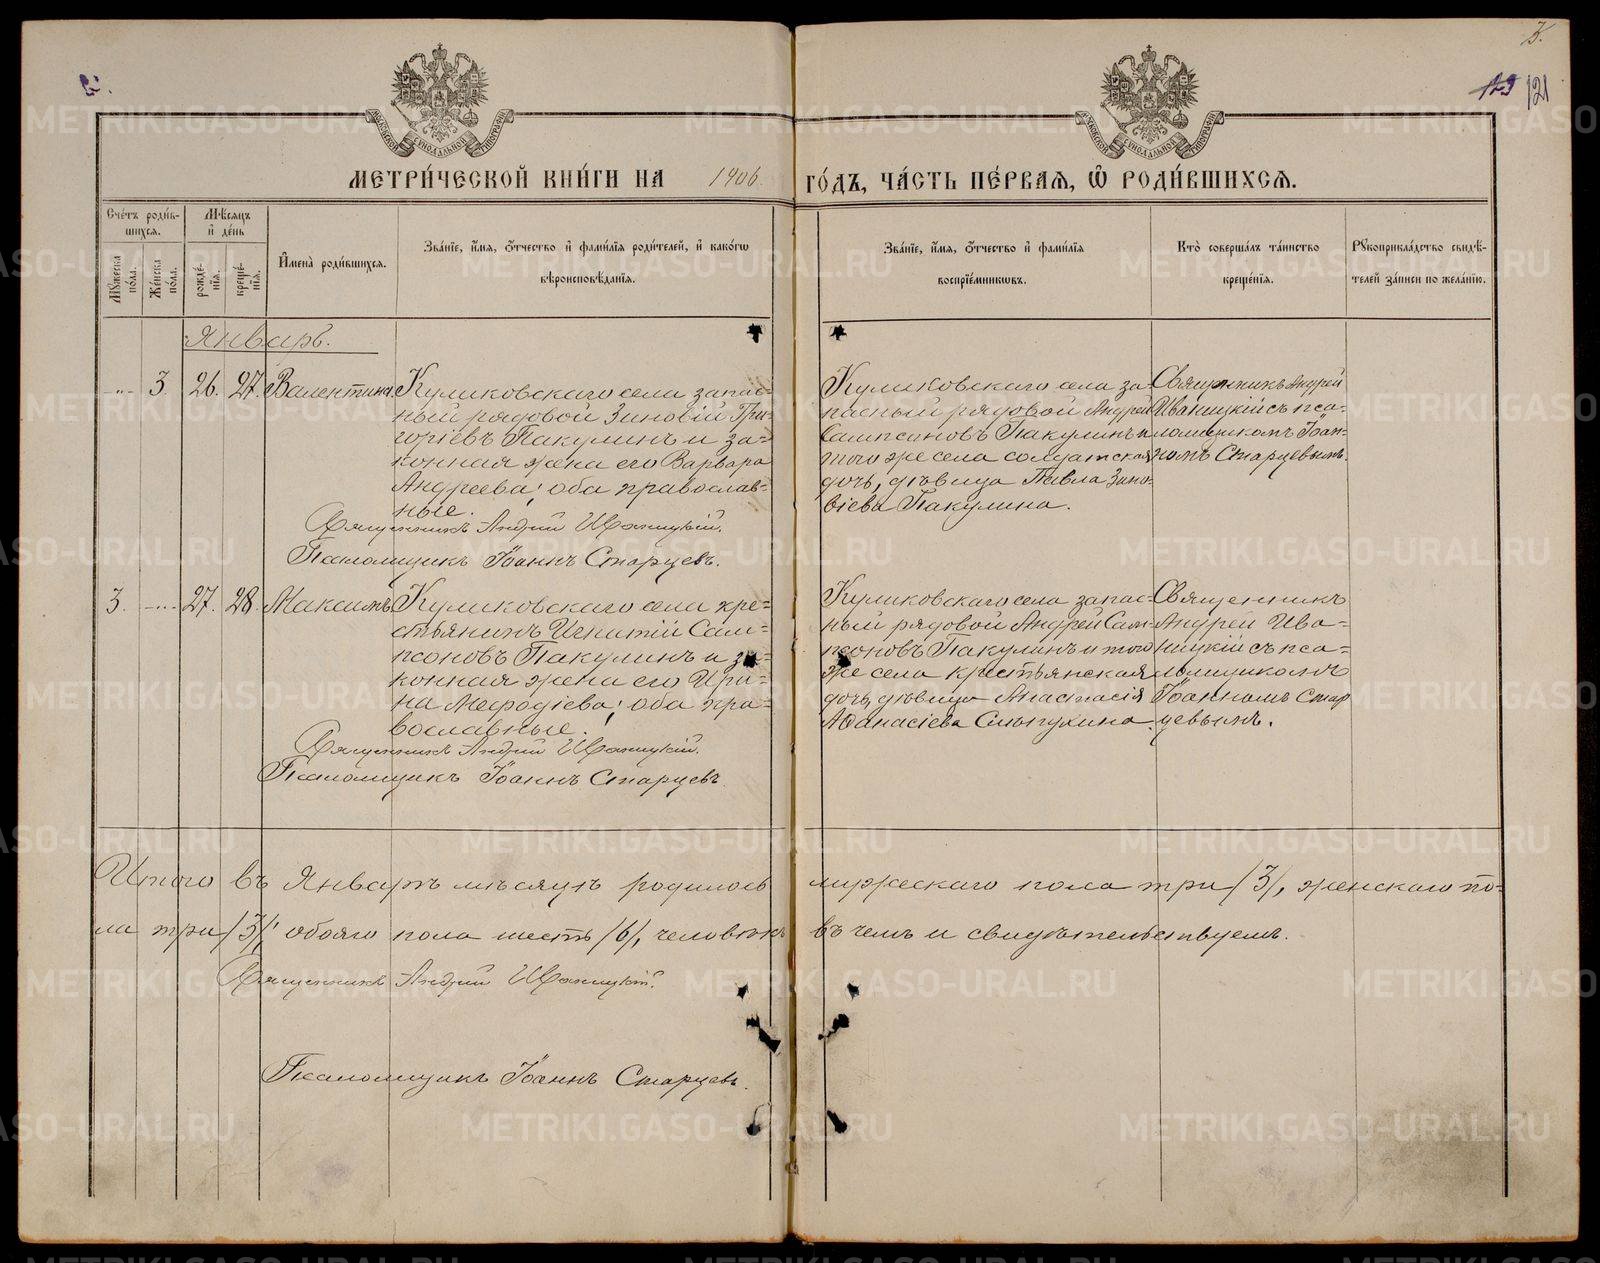 К.
123 121
МЕТРИ́ЧЕСКОЙ КНИ́ГИ НА 1906 ГО́ДЪ, ЧА́СТЬ ПЕ́РВАЯ, Ѡ РОДИ́ВШИХСЯ.
Сче́тъ роди́в-
шихся.
Мꙋ́жеска по́ла.
Же́нска по́ла.
Мѣ́сяцъ
и҆ де́нь
рожде́-
нїѧ.
креще́-
нїѧ.
И҆мена̀ роди́вшихся.
Зва́нїе, и҆́мя, ѻ҆́тчество и҆ фами́лїя роди́телей, и҆ како́гѡ
вѣроисповѣ́данїя.
Зва́нїе, и҆́мя, ѻ҆́тчество и҆ фами́лїя
воспрїе́мникѡвъ.
Кто̀ соверша́лъ та́инство
креще́нїя.
Рꙋкоприкла́дство свидѣ́-
телей за́писи по жела́нїю.
Январь.
-"- 3. 26. 27. Валентина
Куликовскаго села запас=
ный рядовой Зиновій Гри-
горіевъ Пакулинъ и за=
конная жена его Варвара
Андреева; оба православ=
ные.
Священникъ Андрей Иваницкій.
Псаломщикъ Іоаннъ Старцевъ.
Куликовскаго села за-
пасный рядовой Андрей
Сампсоновъ Пакулинъ и
того же села солдатская
дочь, дѣвица Павла Зино-
віева Пакулина.
Священникъ Андрей
Иваницкій съ пса=
ломщикомъ Іоан-
номъ Старцевымъ.
3. -"- 27. 28. Максимъ
Куликовскаго села кре=
стьянинъ Игнатій Сам=
псоновъ Пакулинъ и за=
конная жена его Ири=
на Меѳодіева; оба пра=
вославные.
Священникъ Андрей Иваницкій.
Псаломщикъ Іоаннъ Старцевъ
Куликовскаго села запас=
ный рядовой Андрей Сам-
псоновъ Пакулинъ и того
же села крестьянская
дочь, дѣвица Анастасія
Аѳанасіева Слопухина.
Священникъ
Андрей Ива=
ницкій съ пса=
ломщикомъ
Іоанномъ Стар
цевымъ.
Итого въ Январѣ мѣсяцѣ родилось мужескаго пола три /3/, женскаго по-
ла три /3/, обоего пола шесть /6/, человѣкъ въ чемъ и свидѣтельствуемъ.
Священникъ Андрей Иваницкій.
Псаломщикъ Іоаннъ Старцевъ.
METRIKI.GASO-URAL.RU